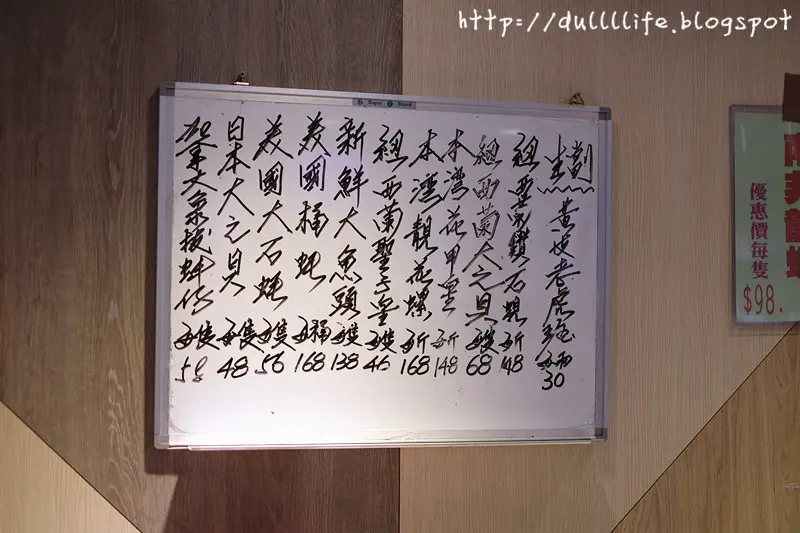 http://dullllife.blogspot
Super Board
生劏
黃皮老虎 每兩 30
紐 鑽石蜆 每斤 148
紐西蘭大之貝 每隻 68
本灣花甲皇 每斤 148
本灣靚花螺 每斤 168
紐西蘭聖子皇 每隻 46
新鮮大魚頭 每隻 138
美國桶蠔 每桶 168
美國大石蠔 每隻 56
日本大之貝 每隻 48
加拿大象拔蚌仔 每隻 58
優惠價每隻
$98.